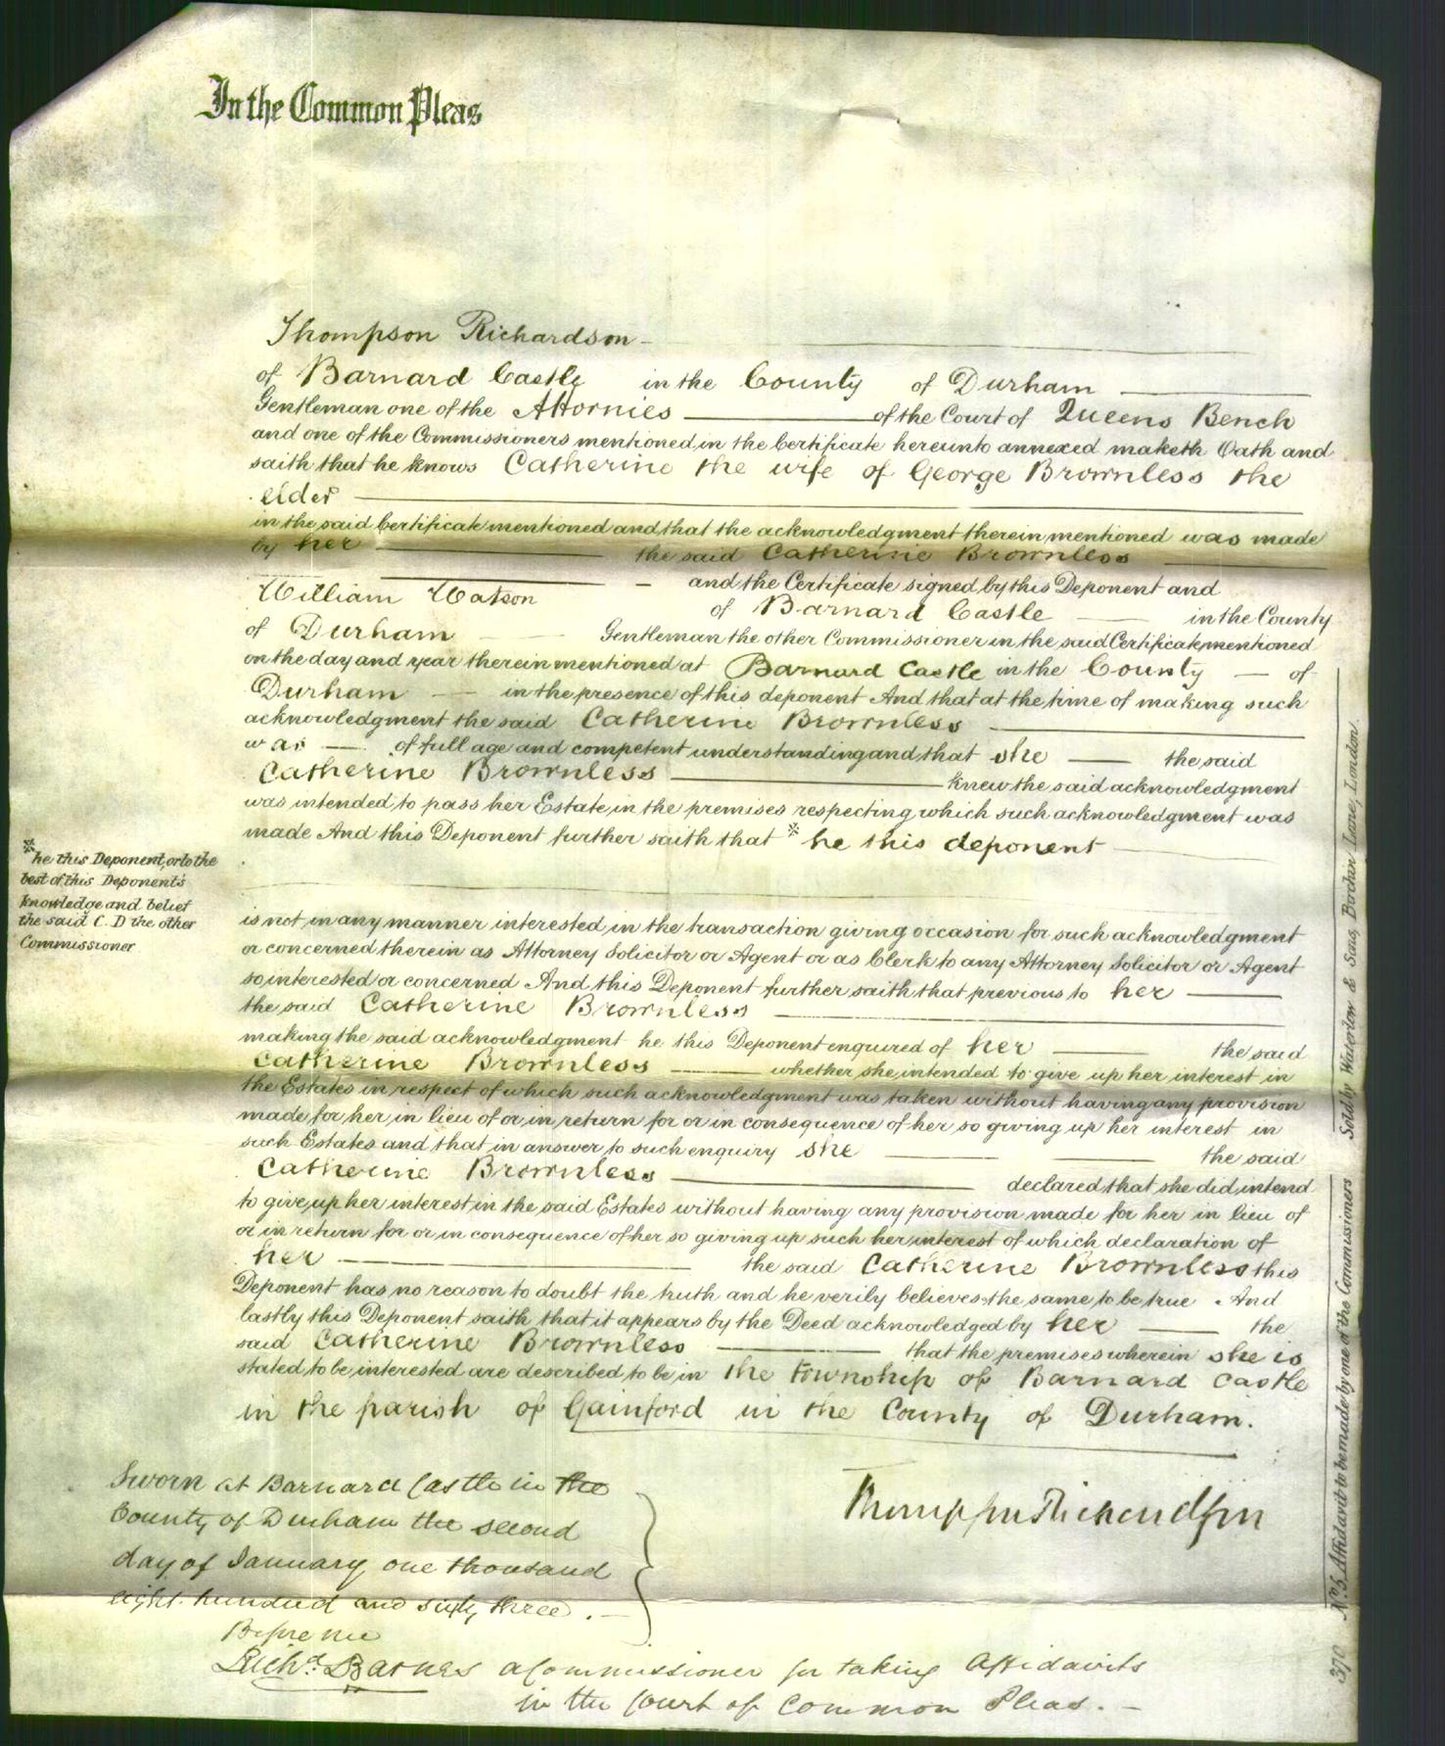 In the Common Pleas
Thompson Richardson
of Barnard Castle in the County of Durham
Gentleman one of the Attornies of the Court of Queens Bench
and one of the Commissioners mentioned in the Certificate hereunto annexed maketh Oath and
saith that he knows Catherine the wife of George Brownless the
elder
in the said Certificate mentioned and that the acknowledgment therein mentioned was made
by her the said Catherine Brownless
and the Certificate signed by this Deponent and
William Watson of Barnard Castle in the County
of Durham Gentleman the other Commissioner in the said Certificate mentioned
on the day and year therein mentioned at Barnard Castle in the County of
Durham in the presence of this deponent And that at the time of making such
acknowledgment the said Catherine Brownless
was of full age and competent understanding and that she the said
Catherine Brownless knew the said acknowledgment
was intended to pass her Estate in the premises respecting which such acknowledgment was
made And this Deponent further saith that * he this deponent
* he this Deponent, or to the
best of this Deponent's
knowledge and belief
the said C. D the other
Commissioner
is not in any manner interested in the transaction giving occasion for such acknowledgment
or concerned therein as Attorney Solicitor or Agent or as Clerk to any Attorney Solicitor or Agent
so interested or concerned And this Deponent further saith that previous to her
the said Catherine Brownless
making the said acknowledgment he this Deponent enquired of her the said
Catherine Brownless whether she intended to give up her interest in
the Estates in respect of which such acknowledgment was taken without having any provision
made for her in lieu of or in return for or in consequence of her so giving up her interest in
such Estates and that in answer to such enquiry she the said
Catherine Brownless declared that she did intend
to give up her interest in the said Estates without having any provision made for her in lieu of
or in return for or in consequence of her so giving up such her interest of which declaration of
her the said Catherine Brownless this
Deponent has no reason to doubt the truth and he verily believes the same to be true. And
lastly this Deponent saith that it appears by the Deed acknowledged by her the
said Catherine Brownless that the premises wherein she is
stated to be interested are described to be in the township of Barnard Castle
in the parish of Gainford in the County of Durham.
Sworn at Barnard Castle in the
County of Durham the second
day of January one thousand
eight hundred and sixty three.
Before me
Richd. Barnes a Commissioner for taking Affidavits
in the Court of Common Pleas.
Thompson Richardson
370 No. 5 Affidavit to be made by one of the Commissioners Sold by Waterlow & Sons, Birchin Lane, London.